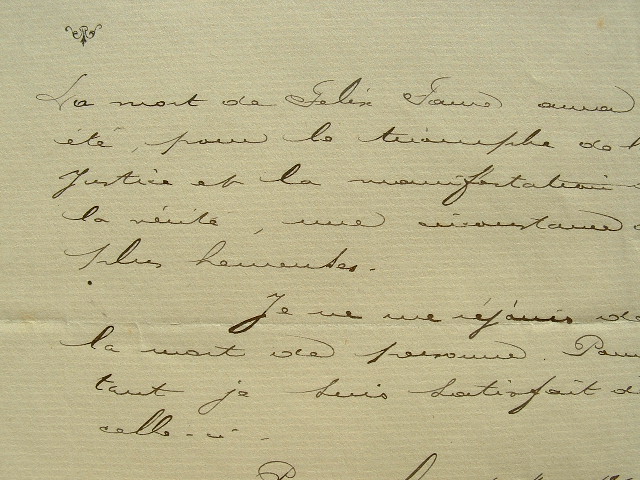 La mort de Felix Faure aura
été, pour le triomphe de l
Justice et la manifestation d
la vérité, une circonstance d
plus heureuses.
Je ne me réjouis de
la mort de personne. Pour
tant je suis satisfait de
celle-ci.